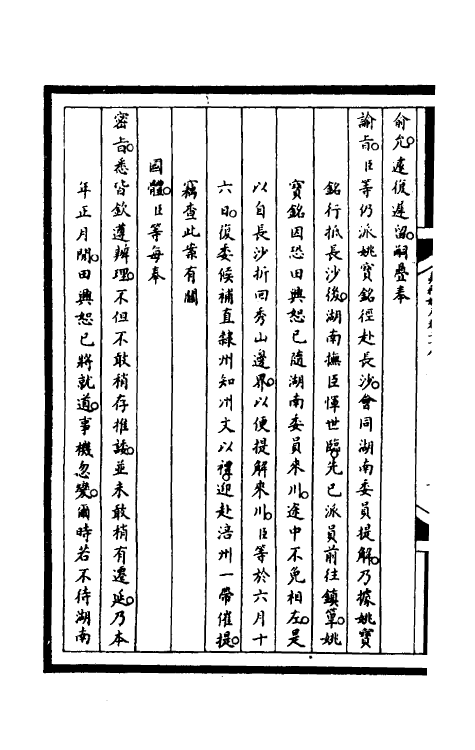 俞允。遽復遲留。嗣疊奉
諭旨。臣等仍派姚寶銘徑赴長沙。會同湖南委員提解。乃據姚寶
銘行抵長沙後。湖南撫臣惲世臨。先已派員前往鎮筸。姚
寶銘因恐田興恕已隨湖南委員來川。途中不免相左。是
以自長沙折回秀山邊界。以便提解來川。臣等於六月十
六日。復委候補直隸州知州文以禮。迎赴涪州一帶催提。
竊查此案有關
國體。臣等每奉
密旨。悉皆欽遵辦理。不但不敢稍存推諉。並未敢稍有遷延。乃本
年正月間。田興恕已將就道。事機忽變。爾時若不待湖南